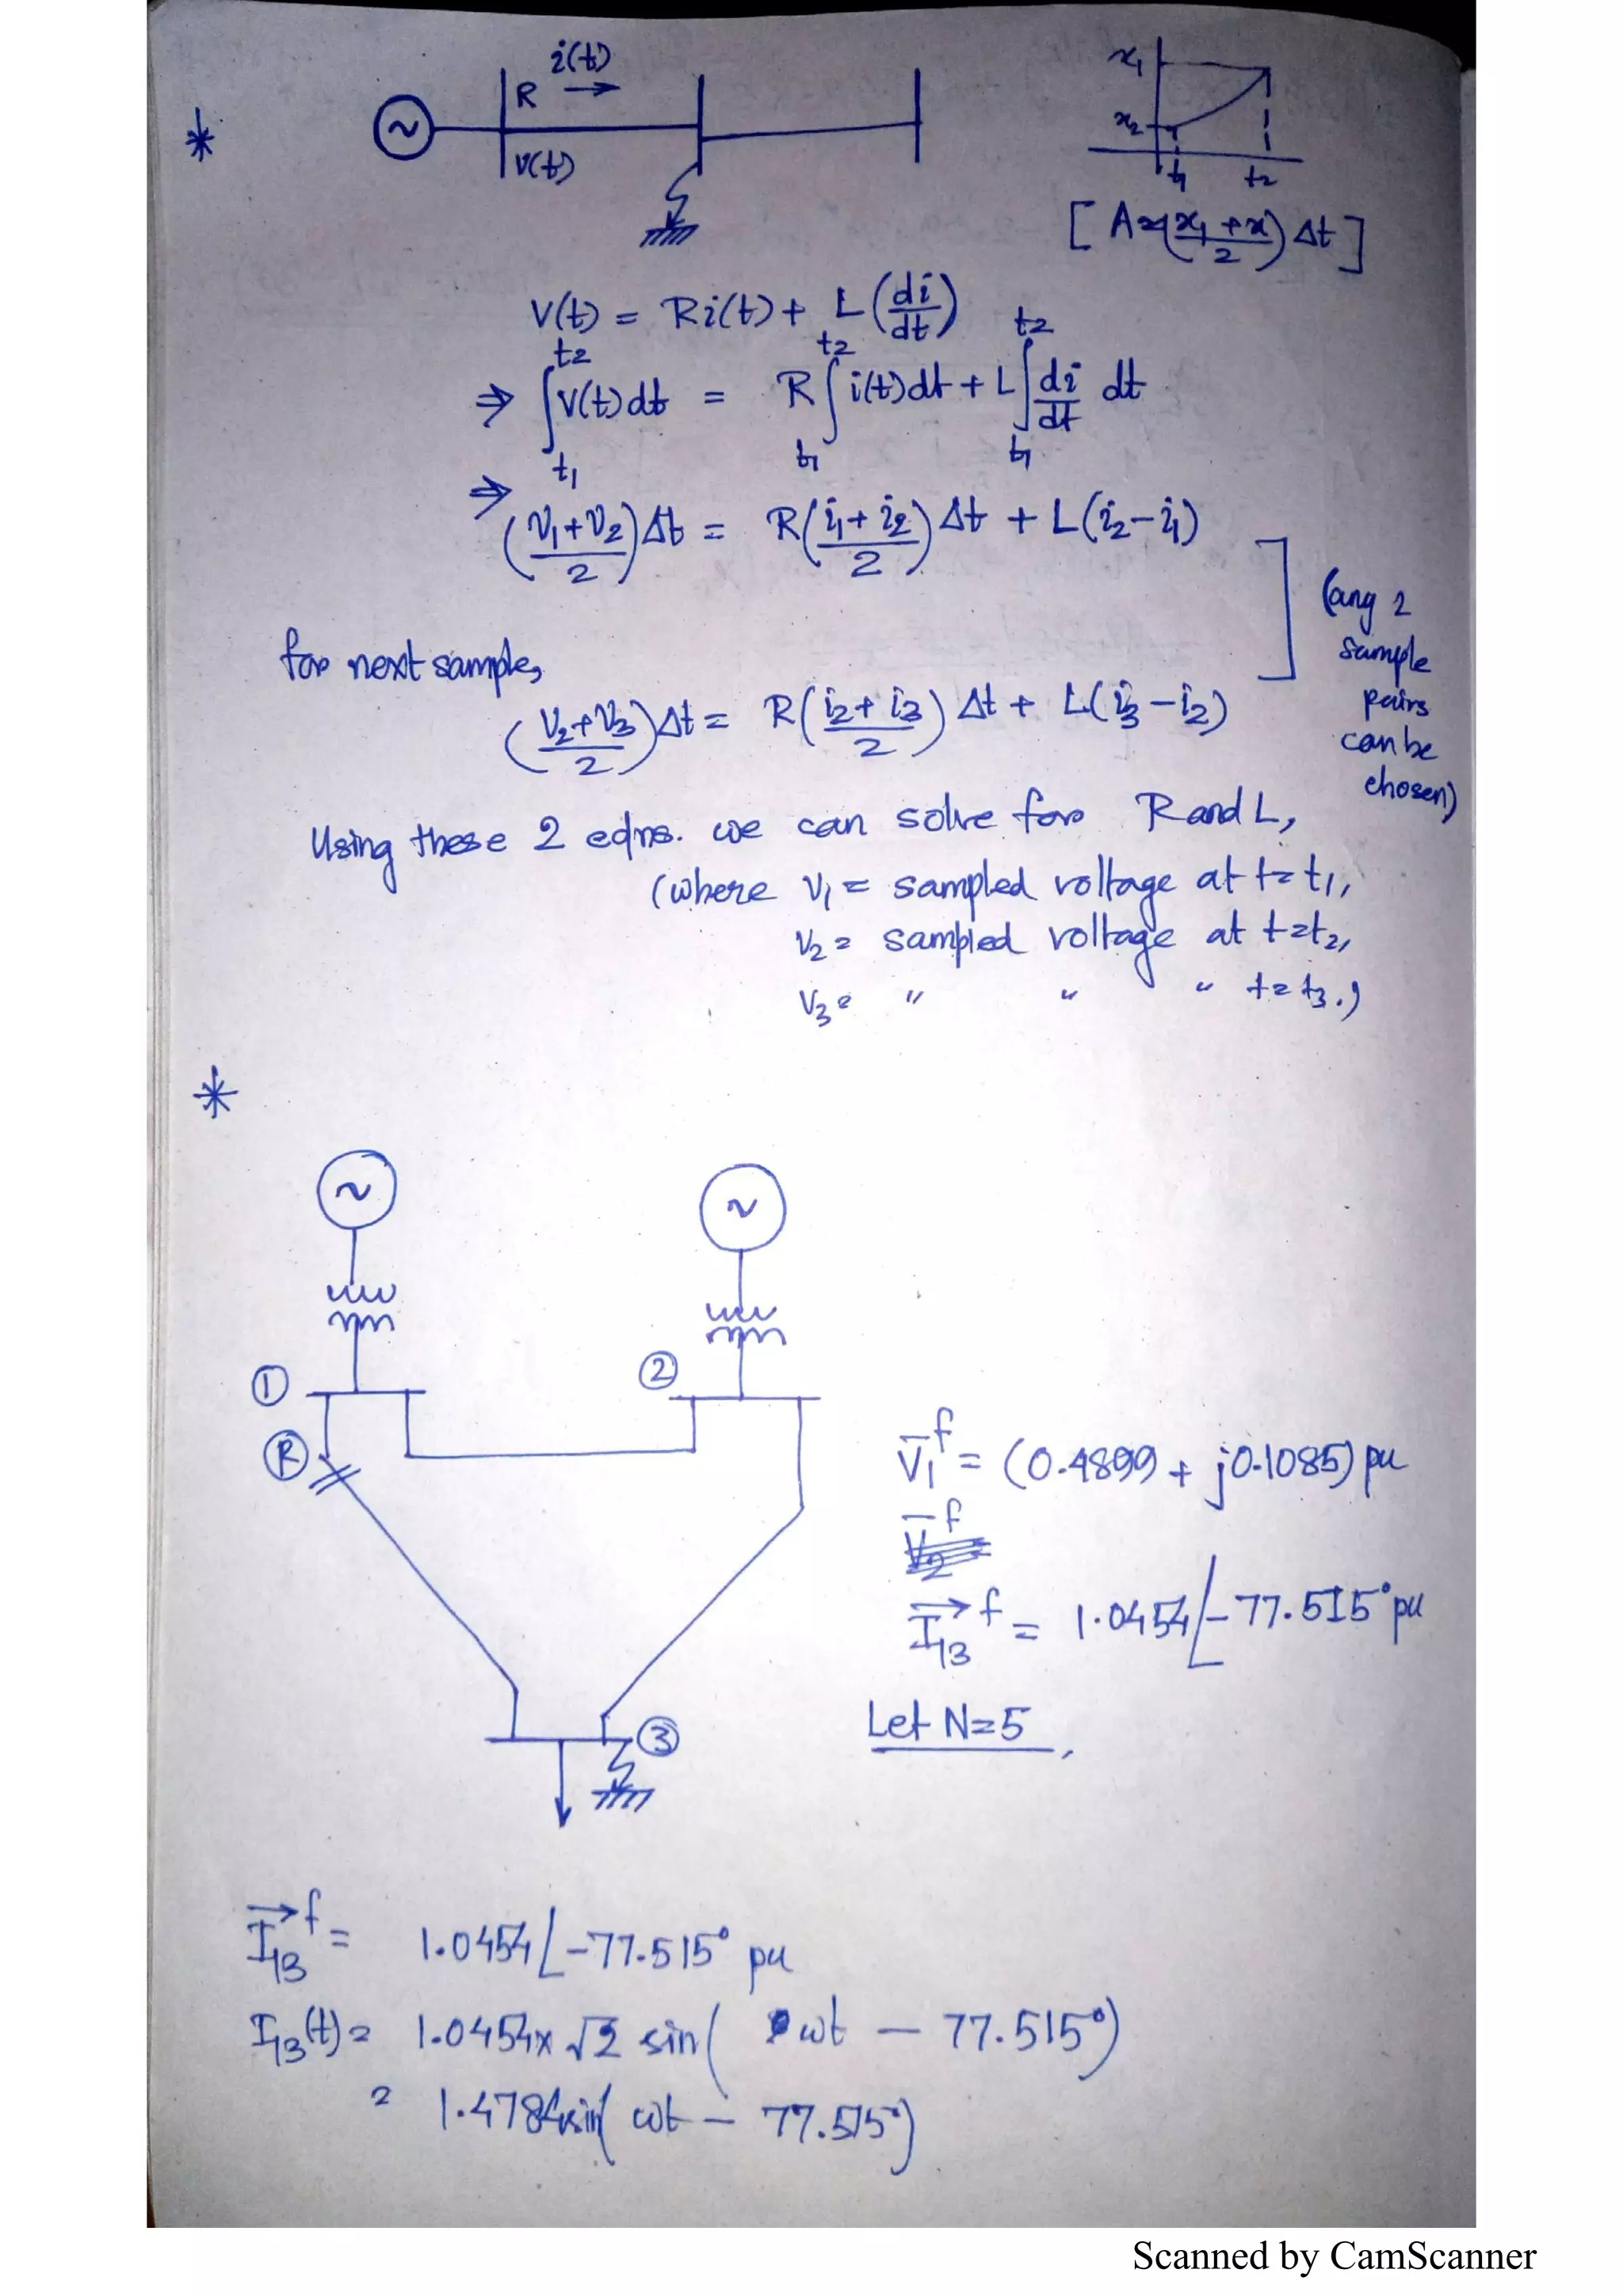 i(t)
* R → x₁
V(t) x₂
t₁ t₂
[ A≈(x₁+x/2) Δt ]
V(t) = Ri(t) + L(di/dt)
⇒ ∫_{t₁}^{t₂} V(t)dt = R∫_{t₁}^{t₂} i(t)dt + L∫_{t₁}^{t₂} di/dt dt
⇒ (V₁+V₂/2)Δt = R(i₁+i₂/2)Δt + L(i₂-i₁)
for next sample,
(V₂+V₃/2)Δt = R(i₂+i₃/2)Δt + L(i₃-i₂)
(any 2
sample
pairs
can be
chosen)
Using these 2 eqns. we can solve for R and L,
(where V₁ = sampled voltage at t=t₁,
V₂ = sampled voltage at t=t₂,
V₃ = " " " t=t₃.)
*
~ ~
① ②
Ⓡ
V̄₁ᶠ = (0.4899 + j0.1085) pu
I₁₃ᶠ = 1.0454∠-77.515° pu
Let N=5,
③
I₁₃ᶠ = 1.0454∠-77.515° pu
I₁₃(t) = 1.0454×√2 sin( ωt - 77.515°)
= 1.4784sin( ωt - 77.515°)
Scanned by CamScanner